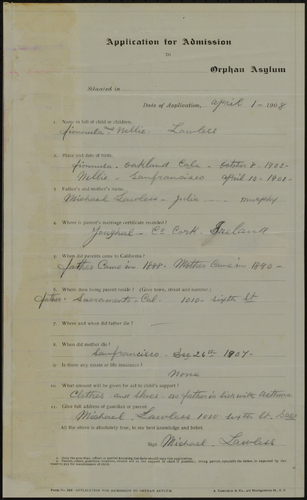 Application for Admission
to
Orphan Asylum
Situated in
Date of Application, April 1 - 1908
1. Name in full of child or children.
and Nellie Lawless
2. Place and date of birth.
Oakland Cala - October 8 - 1902 -
Nellie - Sanfrancisco April 16 - 1901 -
3. Father's and mother's name.
Michael Lawless - Julia - Murphy
4. Where is parent's marriage certificate recorded?
Youghal - Co Cork - Ireland
5. When did parents come to California?
Father Came in 1888 - Mother Came in 1890 -
6. Where does living parent reside? (Give town, street and number).
father - Sacramento - Cal. 1010 - sixth St
7. Where and when did father die?
8. When and where did mother die?
Sanfrancisco - Dec 26th 1907 -
9. Is there any estate or life insurance?
None
10. What amount will be given for aid in child's support?
Clothes and Shoes - as father is
11. Give full address of guardian or parent
Michael Lawless 1010 sixth St
All the above is absolutely true, to my best knowledge and belief.
Michael - Lawless